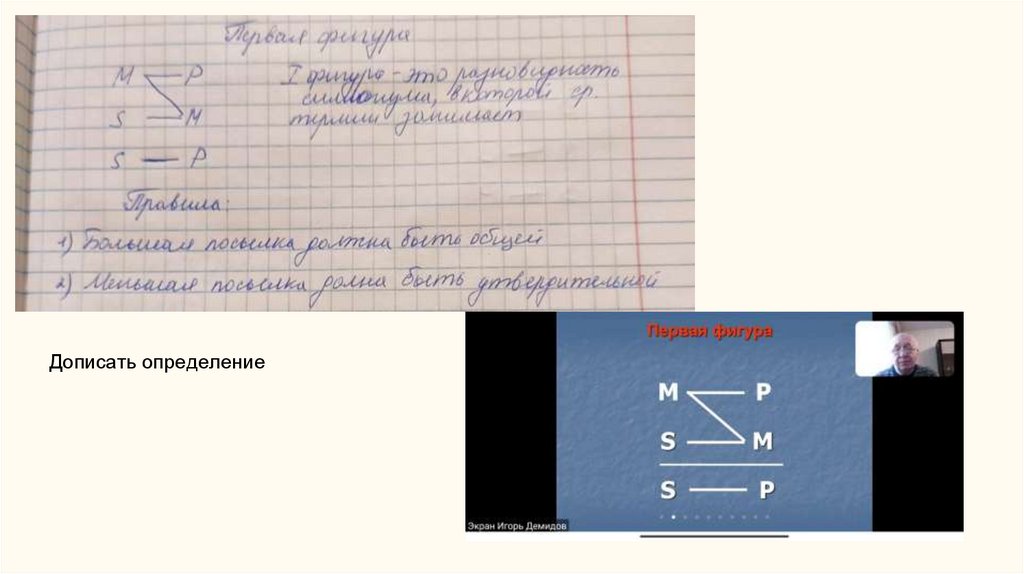 Первая фигура
M P
I фигура - это разновидность
силлогизма, в которой ср.
S M
термин занимает
S P
Правила:
1) Большая посылка должна быть общей
2) Меньшая посылка должна быть утвердительной
Дописать определение
Первая фигура
M P
S M
S P
Экран Игорь Демидов